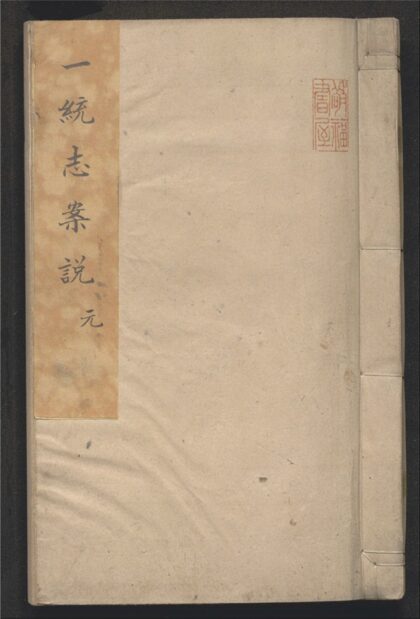 一統志案說
元